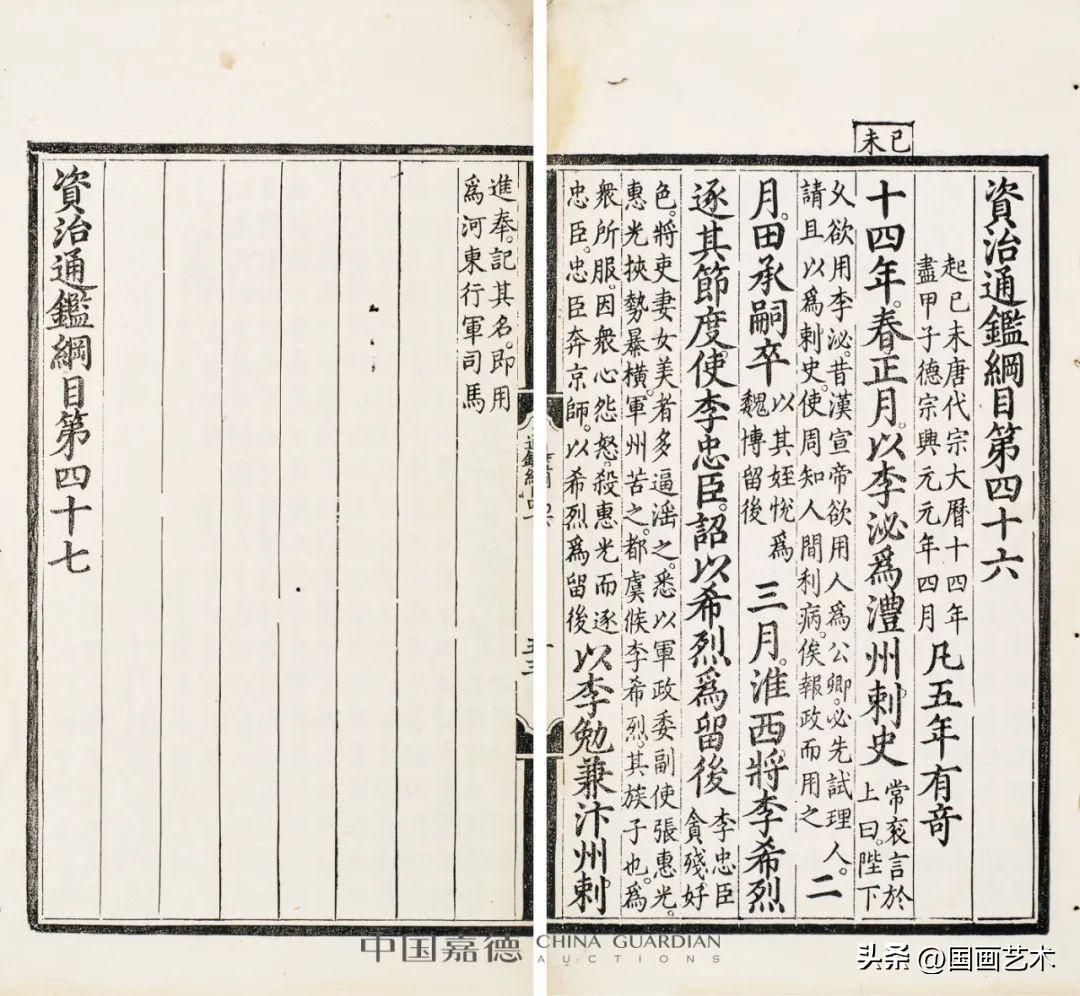 己未
資治通鑑綱目第四十六
起己未唐代宗大曆十四年
盡甲子德宗興元元年四月
凡五年有奇
十四年。春正月。以李泌爲澧州刺史
常衮言於
上曰。陛下
乆欲用李泌。昔漢宣帝欲用人爲公卿。必先試理人。
請且以爲刺史。使周知人間利病。俟報政而用之
二
月。田承嗣卒
以其姪悅爲
魏博留後
三月。淮西將李希烈
逐其節度使李忠臣。詔以希烈爲留後
李忠臣
貪殘好
色。將吏妻女美者多逼滛之。悉以軍政委副使張惠光。
惠光挾勢暴橫。軍州苦之。都虞候李希烈。其族子也。爲
衆所服。因衆心怨怒。殺惠光而逐
忠臣。忠臣奔京師。以希烈爲留後
以李勉兼汴州刺
進奉。記其名。即用
爲河東行軍司馬
資治通鑑綱目第四十七
中国嘉德 CHINA GUARDIAN
AUCTIONS
头条 @国画艺术